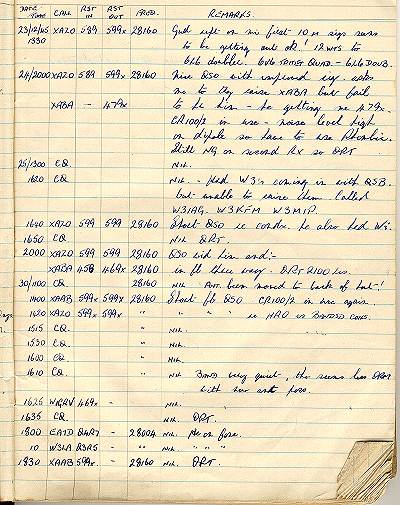 DATE TIME CALL RST IN RST OUT FREQ. REMARKS.
23/12/45 1330 XAZO 589 599x 28160 Gud rept on six first 10 m sigs seems
to be getting out ok! 12 wts to
6L6 doubler. 6V6 6L6 DOUB.
24/2000 XAZO 589 599x 28160 Nice QSO with improved sig. asks
me to try raise XABA but fail
XABA - 479x to hr him - he getting me 479x.
CR100/2 in use - noise level high
on dipole so have to use
Still NG on second Rx so QRT
25/1300 CQ. NIL.
1620 CQ NIL. - Had W3's coming in with QSB.
but unable to raise them. Called
W3IAG. W3KFM W3MIP.
1640 XAZO 599 599 28160 Short QSO he also hrd W's.
1650 CQ NIL QRT.
2000 XAZO 599 599 28160 QSO wid him and:-
XABA 458 469x 28160 in fb three way. QRT 2100 hrs.
30/1100 CQ 28160 NIL ANT. been moved to back of hut-!
1400 XAAB 599x 599x 28160 Short fb QSO CR100/2 in use again.
1420 XAZO 599x 599x " " " HRO is coils.
1515 CQ " NIL.
1530 CQ " NIL.
1600 CQ " NIL.
1610 CQ " NIL Band very quiet, tho seems less QRM
with new ant posn.
1625 469x NIL. " "
1635 CQ. NIL. QRT.
1800 - 28004 NIL. No on fone.
10 W3LA - NIL. " " "
1830 XAAB 599x. - 28160 NIL. QRT.